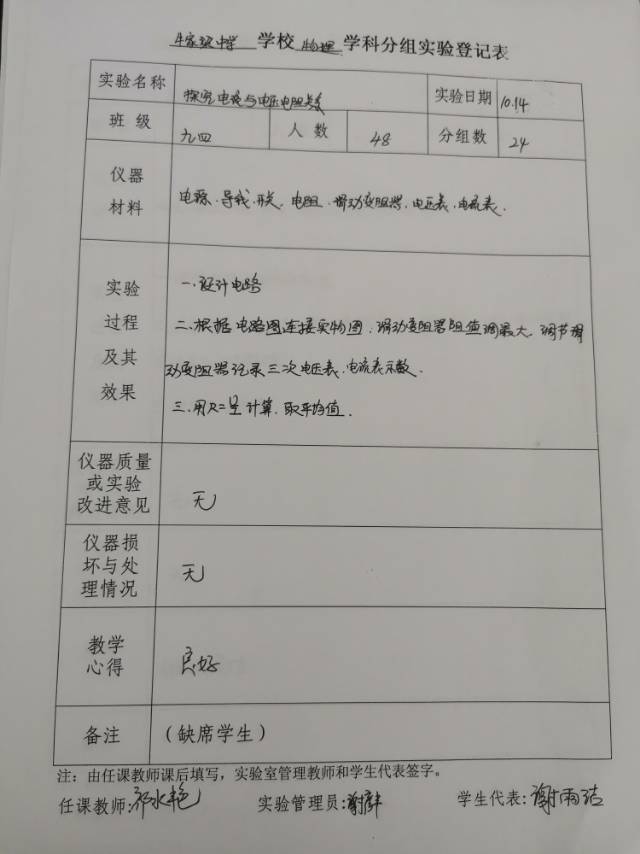 中学 学校 物理 学科分组实验登记表
实验名称 探究电流与电压电阻关系 实验日期 10.14
班级 九四 人数 48 分组数 24
仪器材料 电源、导线、开关、电阻、滑动变阻器、电压表、电流表.
实验过程及其效果
一、设计电路
二、根据电路图连接实物图,滑动变阻器阻值调最大,调节滑
动变阻器记录三次电压表、电流表示数.
三、用R=U/I计算,取平均值.
仪器质量或实验改进意见 无
仪器损坏与处理情况 无
教学心得 良好
备注 (缺席学生)
注:由任课教师课后填写,实验室管理教师和学生代表签字。
任课教师:祁水艳 实验管理员:谢 学生代表:谢雨洁